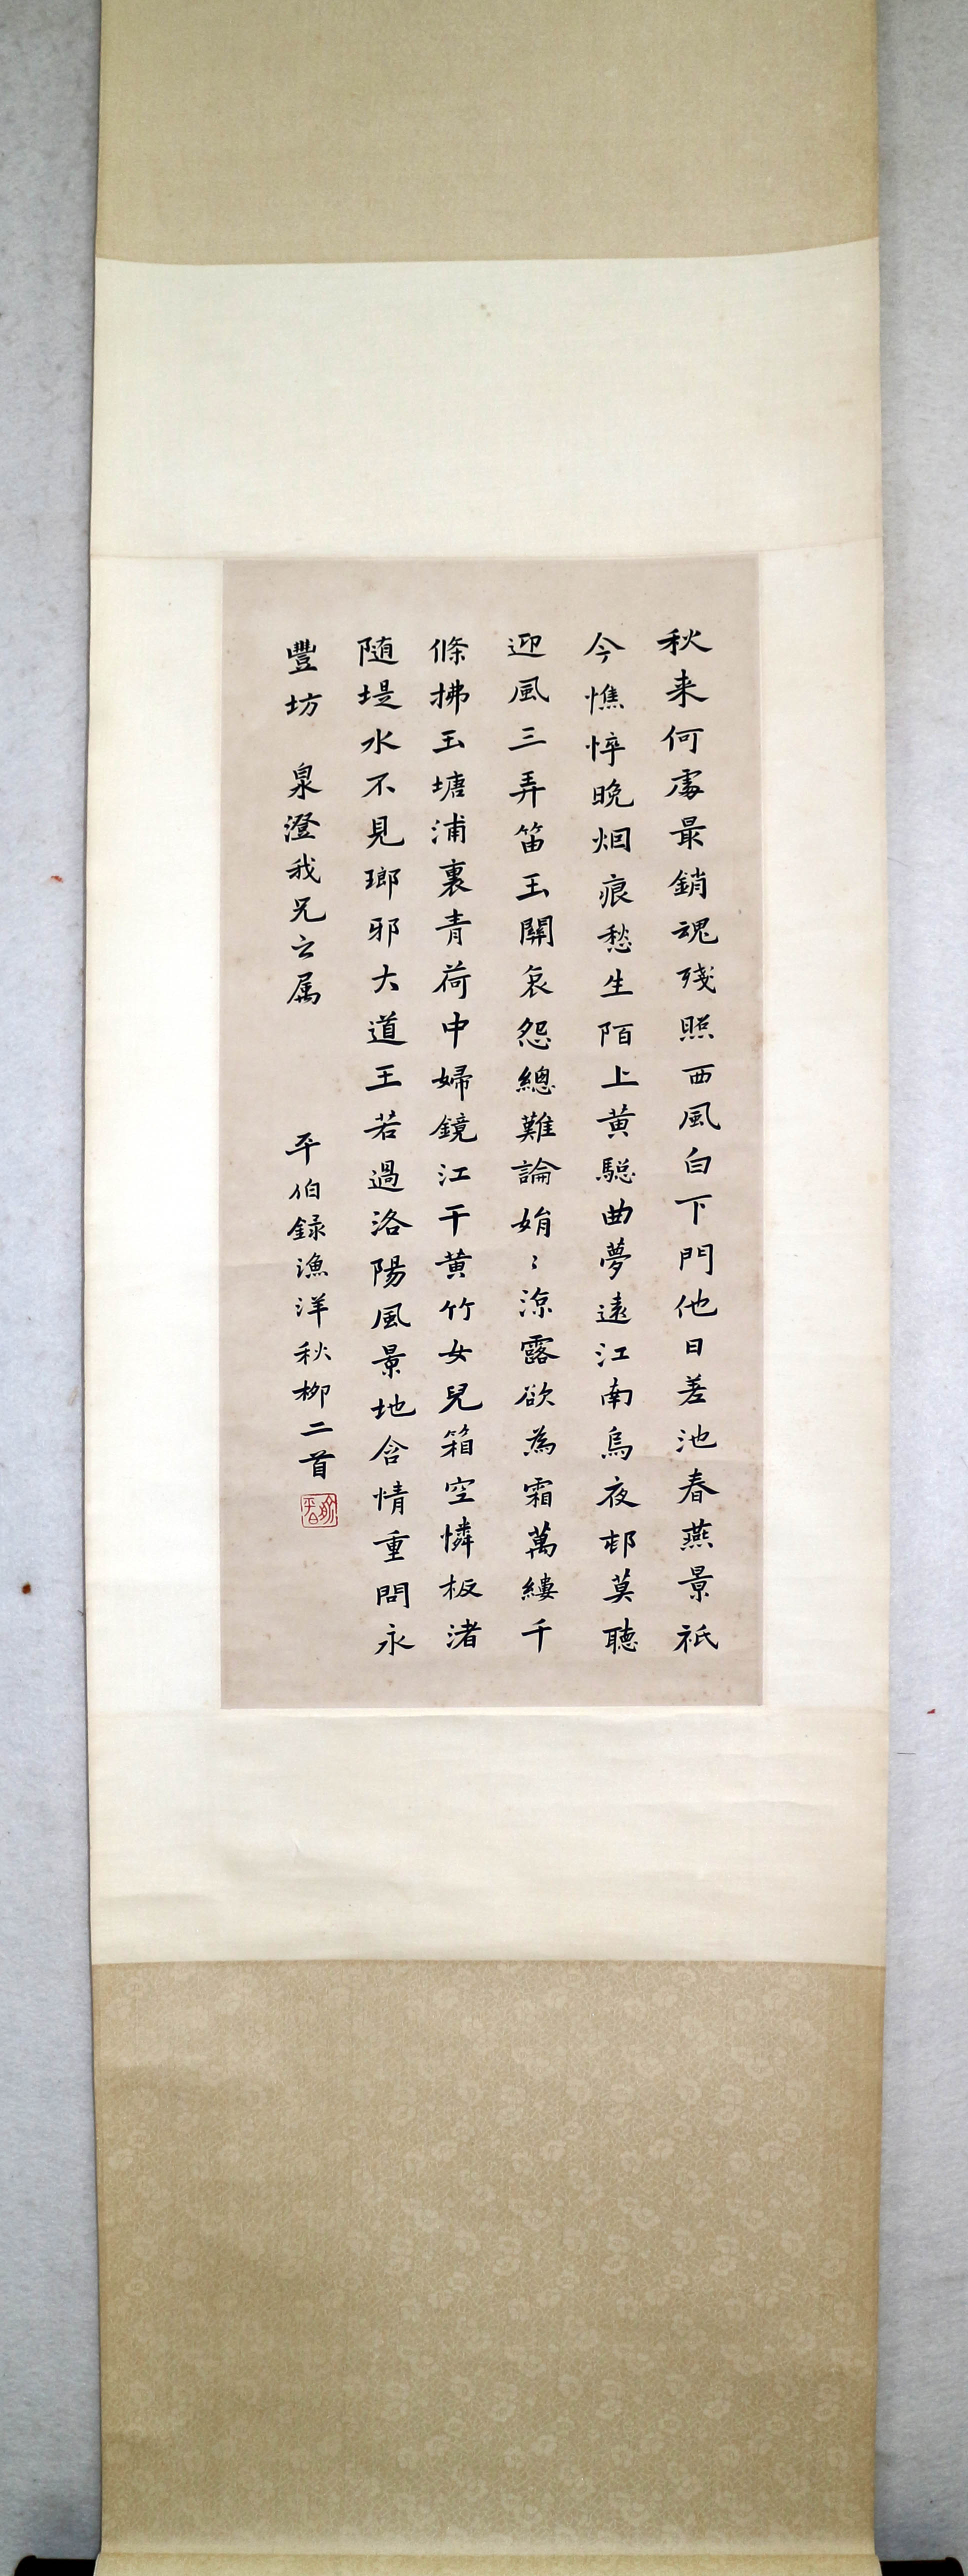 秋来何處最銷魂殘照西風白下門他日差池春燕景祇
今憔悴晚烟痕愁生陌上黄驄曲夢遠江南烏夜邨莫聽
迎風三弄笛玉關哀怨總難論娟〻涼露欲為霜萬縷千
條拂玉塘浦裏青荷中婦鏡江干黄竹女兒箱空憐板渚
随堤水不見瑯邪大道王若過洛陽風景地含情重問永
豐坊 泉澄我兄之属 平伯録漁洋秋柳二首
俞平伯